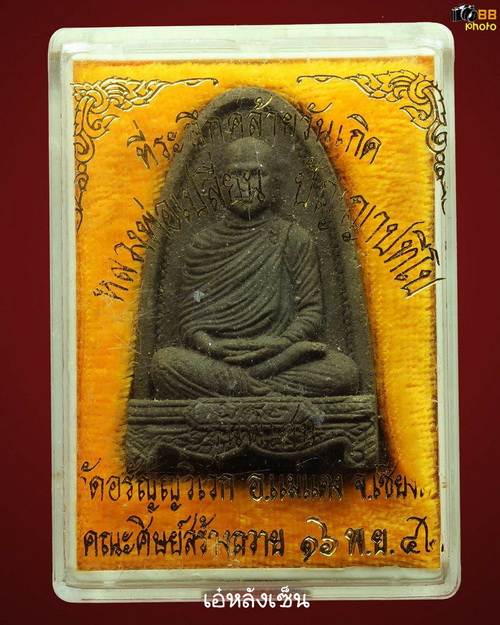 BB
photo
ที่ระลึกคล้ายวันเกิด
หลวงพ่อเปลี่ยน ปัญญาปทีโป
วัดอรัญญวิเวก อ.แม่แตง จ.เชียง
คณะศิษย์สร้างถวาย ๑๖ พ.ย. ๔
เอ๋หลังเซ็น